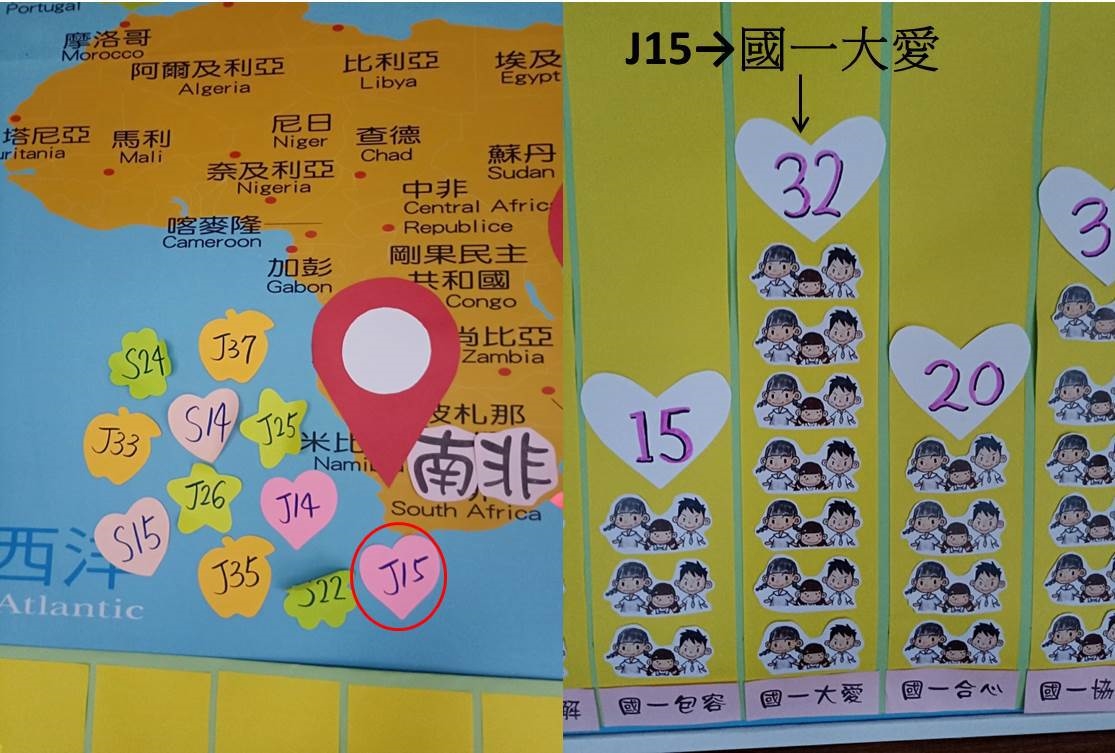 Portugal
摩洛哥
Morocco
阿爾及利亞
Algeria
比利亞
Libya
埃及
Egypt
塔尼亞
uritania
馬利
Mali
尼日
Niger
查德
Chad
奈及利亞
Nigeria
蘇丹
Sudan
中非
Central Afric
Republice
喀麥隆
Cameroon
加彭
Gabon
剛果民主
共和國
Congo
尚比亞
Zambia
札那
米比
Namibi
南非
South Africa
S24
J37
J33
S14
J25
J26
J14
S15
J35
J22
J15
西洋
Atlantic
J15→國一大愛
32
15
20
3
解
國一包容
國一大愛
國一合心
國一協